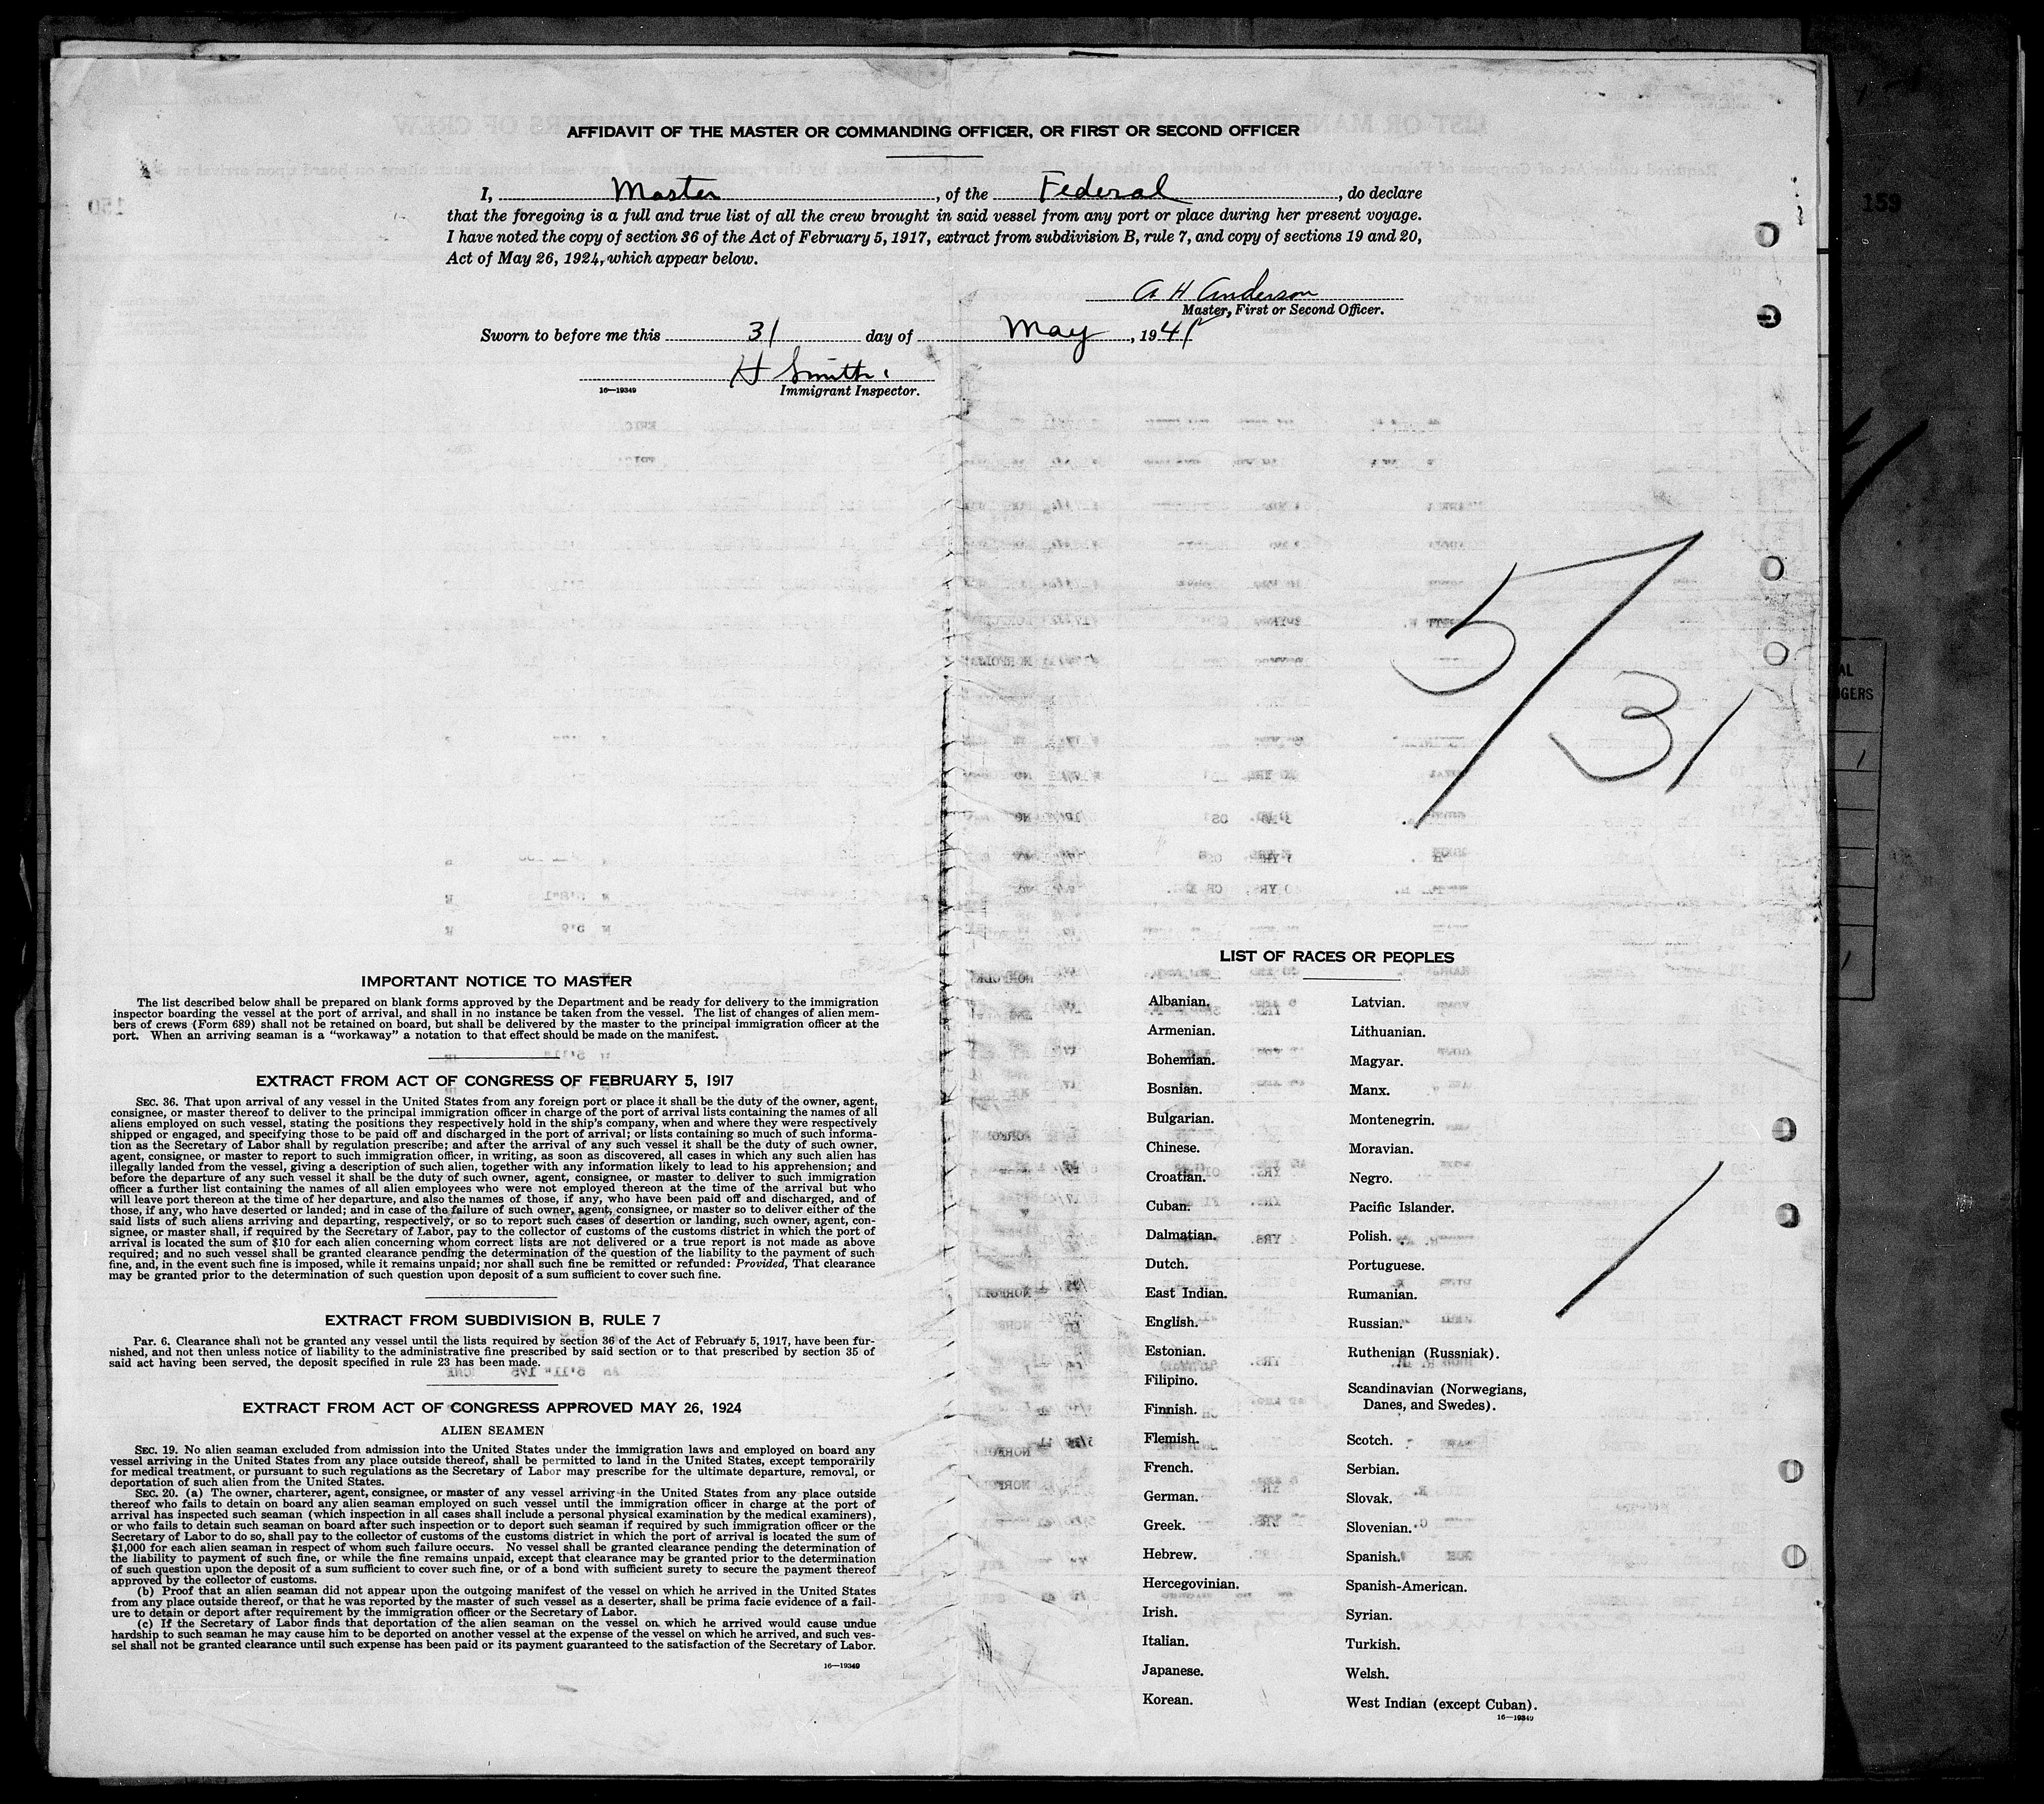 AFFIDAVIT OF THE MASTER OR COMMANDING OFFICER, OR FIRST OR SECOND OFFICER
I, Master, of the Federal, do declare
that the foregoing is a full and true list of all the crew brought in said vessel from any port or place during her present voyage.
I have noted the copy of section 36 of the Act of February 5, 1917, extract from subdivision B, rule 7, and copy of sections 19 and 20,
Act of May 26, 1924, which appear below.
A H Anderson
Master, First or Second Officer.
Sworn to before me this 31 day of May, 1941
H Smith
16—19349 Immigrant Inspector.
159
5/31
IMPORTANT NOTICE TO MASTER
The list described below shall be prepared on blank forms approved by the Department and be ready for delivery to the immigration
inspector boarding the vessel at the port of arrival, and shall in no instance be taken from the vessel. The list of changes of alien mem-
bers of crews (Form 689) shall not be retained on board, but shall be delivered by the master to the principal immigration officer at the
port. When an arriving seaman is a "workaway" a notation to that effect should be made on the manifest.
EXTRACT FROM ACT OF CONGRESS OF FEBRUARY 5, 1917
SEC. 36. That upon arrival of any vessel in the United States from any foreign port or place it shall be the duty of the owner, agent,
consignee, or master thereof to deliver to the principal immigration officer in charge of the port of arrival lists containing the names of all
aliens employed on such vessel, stating the positions they respectively hold in the ship's company, when and where they were respectively
shipped or engaged, and specifying those to be paid off and discharged in the port of arrival; or lists containing so much of such informa-
tion as the Secretary of Labor shall by regulation prescribe; and after the arrival of any such vessel it shall be the duty of such owner,
agent, consignee, or master to report to such immigration officer, in writing, as soon as discovered, all cases in which any such alien has
illegally landed from the vessel, giving a description of such alien, together with any information likely to lead to his apprehension; and
before the departure of any such vessel it shall be the duty of such owner, agent, consignee, or master to deliver to such immigration
officer a further list containing the names of all alien employees who were not employed thereon at the time of the arrival but who
will leave port thereon at the time of her departure, and also the names of those, if any, who have been paid off and discharged, and of
those, if any, who have deserted or landed; and in case of the failure of such owner, agent, consignee, or master so to deliver either of the
said lists of such aliens arriving and departing, respectively, or so to report such cases of desertion or landing, such owner, agent, con-
signee, or master shall, if required by the Secretary of Labor, pay to the collector of customs of the customs district in which the port of
arrival is located the sum of $10 for each alien concerning whom correct lists are not delivered or a true report is not made as above
required; and no such vessel shall be granted clearance pending the determination of the question of the liability to the payment of such
fine, and, in the event such fine is imposed, while it remains unpaid; nor shall such fine be remitted or refunded: Provided, That clearance
may be granted prior to the determination of such question upon deposit of a sum sufficient to cover such fine.
EXTRACT FROM SUBDIVISION B, RULE 7
Par. 6. Clearance shall not be granted any vessel until the lists required by section 36 of the Act of February 5, 1917, have been fur-
nished, and not then unless notice of liability to the administrative fine prescribed by said section or to that prescribed by section 35 of
said act having been served, the deposit specified in rule 23 has been made.
EXTRACT FROM ACT OF CONGRESS APPROVED MAY 26, 1924
ALIEN SEAMEN
SEC. 19. No alien seaman excluded from admission into the United States under the immigration laws and employed on board any
vessel arriving in the United States from any place outside thereof, shall be permitted to land in the United States, except temporarily
for medical treatment, or pursuant to such regulations as the Secretary of Labor may prescribe for the ultimate departure, removal, or
deportation of such alien from the United States.
SEC. 20. (a) The owner, charterer, agent, consignee, or master of any vessel arriving in the United States from any place outside
thereof who fails to detain on board any alien seaman employed on such vessel until the immigration officer in charge at the port of
arrival has inspected such seaman (which inspection in all cases shall include a personal physical examination by the medical examiners),
or who fails to detain such seaman on board after such inspection or to deport such seaman if required by such immigration officer or the
Secretary of Labor to do so, shall pay to the collector of customs of the customs district in which the port of arrival is located the sum of
$1,000 for each alien seaman in respect of whom such failure occurs. No vessel shall be granted clearance pending the determination of
the liability to payment of such fine, or while the fine remains unpaid, except that clearance may be granted prior to the determination
of such question upon the deposit of a sum sufficient to cover such fine, or of a bond with sufficient surety to secure the payment thereof
approved by the collector of customs.
(b) Proof that an alien seaman did not appear upon the outgoing manifest of the vessel on which he arrived in the United States
from any place outside thereof, or that he was reported by the master of such vessel as a deserter, shall be prima facie evidence of a fail-
ure to detain or deport after requirement by the immigration officer or the Secretary of Labor.
(c) If the Secretary of Labor finds that deportation of the alien seaman on the vessel on which he arrived would cause undue
hardship to such seaman he may cause him to be deported on another vessel at the expense of the vessel on which he arrived, and such ves-
sel shall not be granted clearance until such expense has been paid or its payment guaranteed to the satisfaction of the Secretary of Labor.
16—19349
LIST OF RACES OR PEOPLES
Albanian.
Armenian.
Bohemian.
Bosnian.
Bulgarian.
Chinese.
Croatian.
Cuban.
Dalmatian.
Dutch.
East Indian.
English.
Estonian.
Filipino.
Finnish.
Flemish.
French.
German.
Greek.
Hebrew.
Hercegovinian.
Irish.
Italian.
Japanese.
Korean.
Latvian.
Lithuanian.
Magyar.
Manx.
Montenegrin.
Moravian.
Negro.
Pacific Islander.
Polish.
Portuguese.
Rumanian.
Russian.
Ruthenian (Russniak).
Scandinavian (Norwegians,
Danes, and Swedes).
Scotch.
Serbian.
Slovak.
Slovenian.
Spanish.
Spanish-American.
Syrian.
Turkish.
Welsh.
West Indian (except Cuban).
16—19349